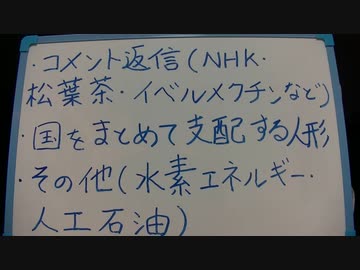 ・コメント返信(NHK・
松葉茶・イベルメクチンなど)
・国をまとめて支配する人形
・その他(水素エネルギー・
人工石油)